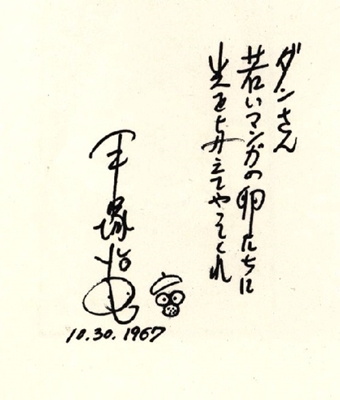 ダンさん
若いマンガの卵たちに
光を与えてやってくれ
手塚治虫
10.30.1967